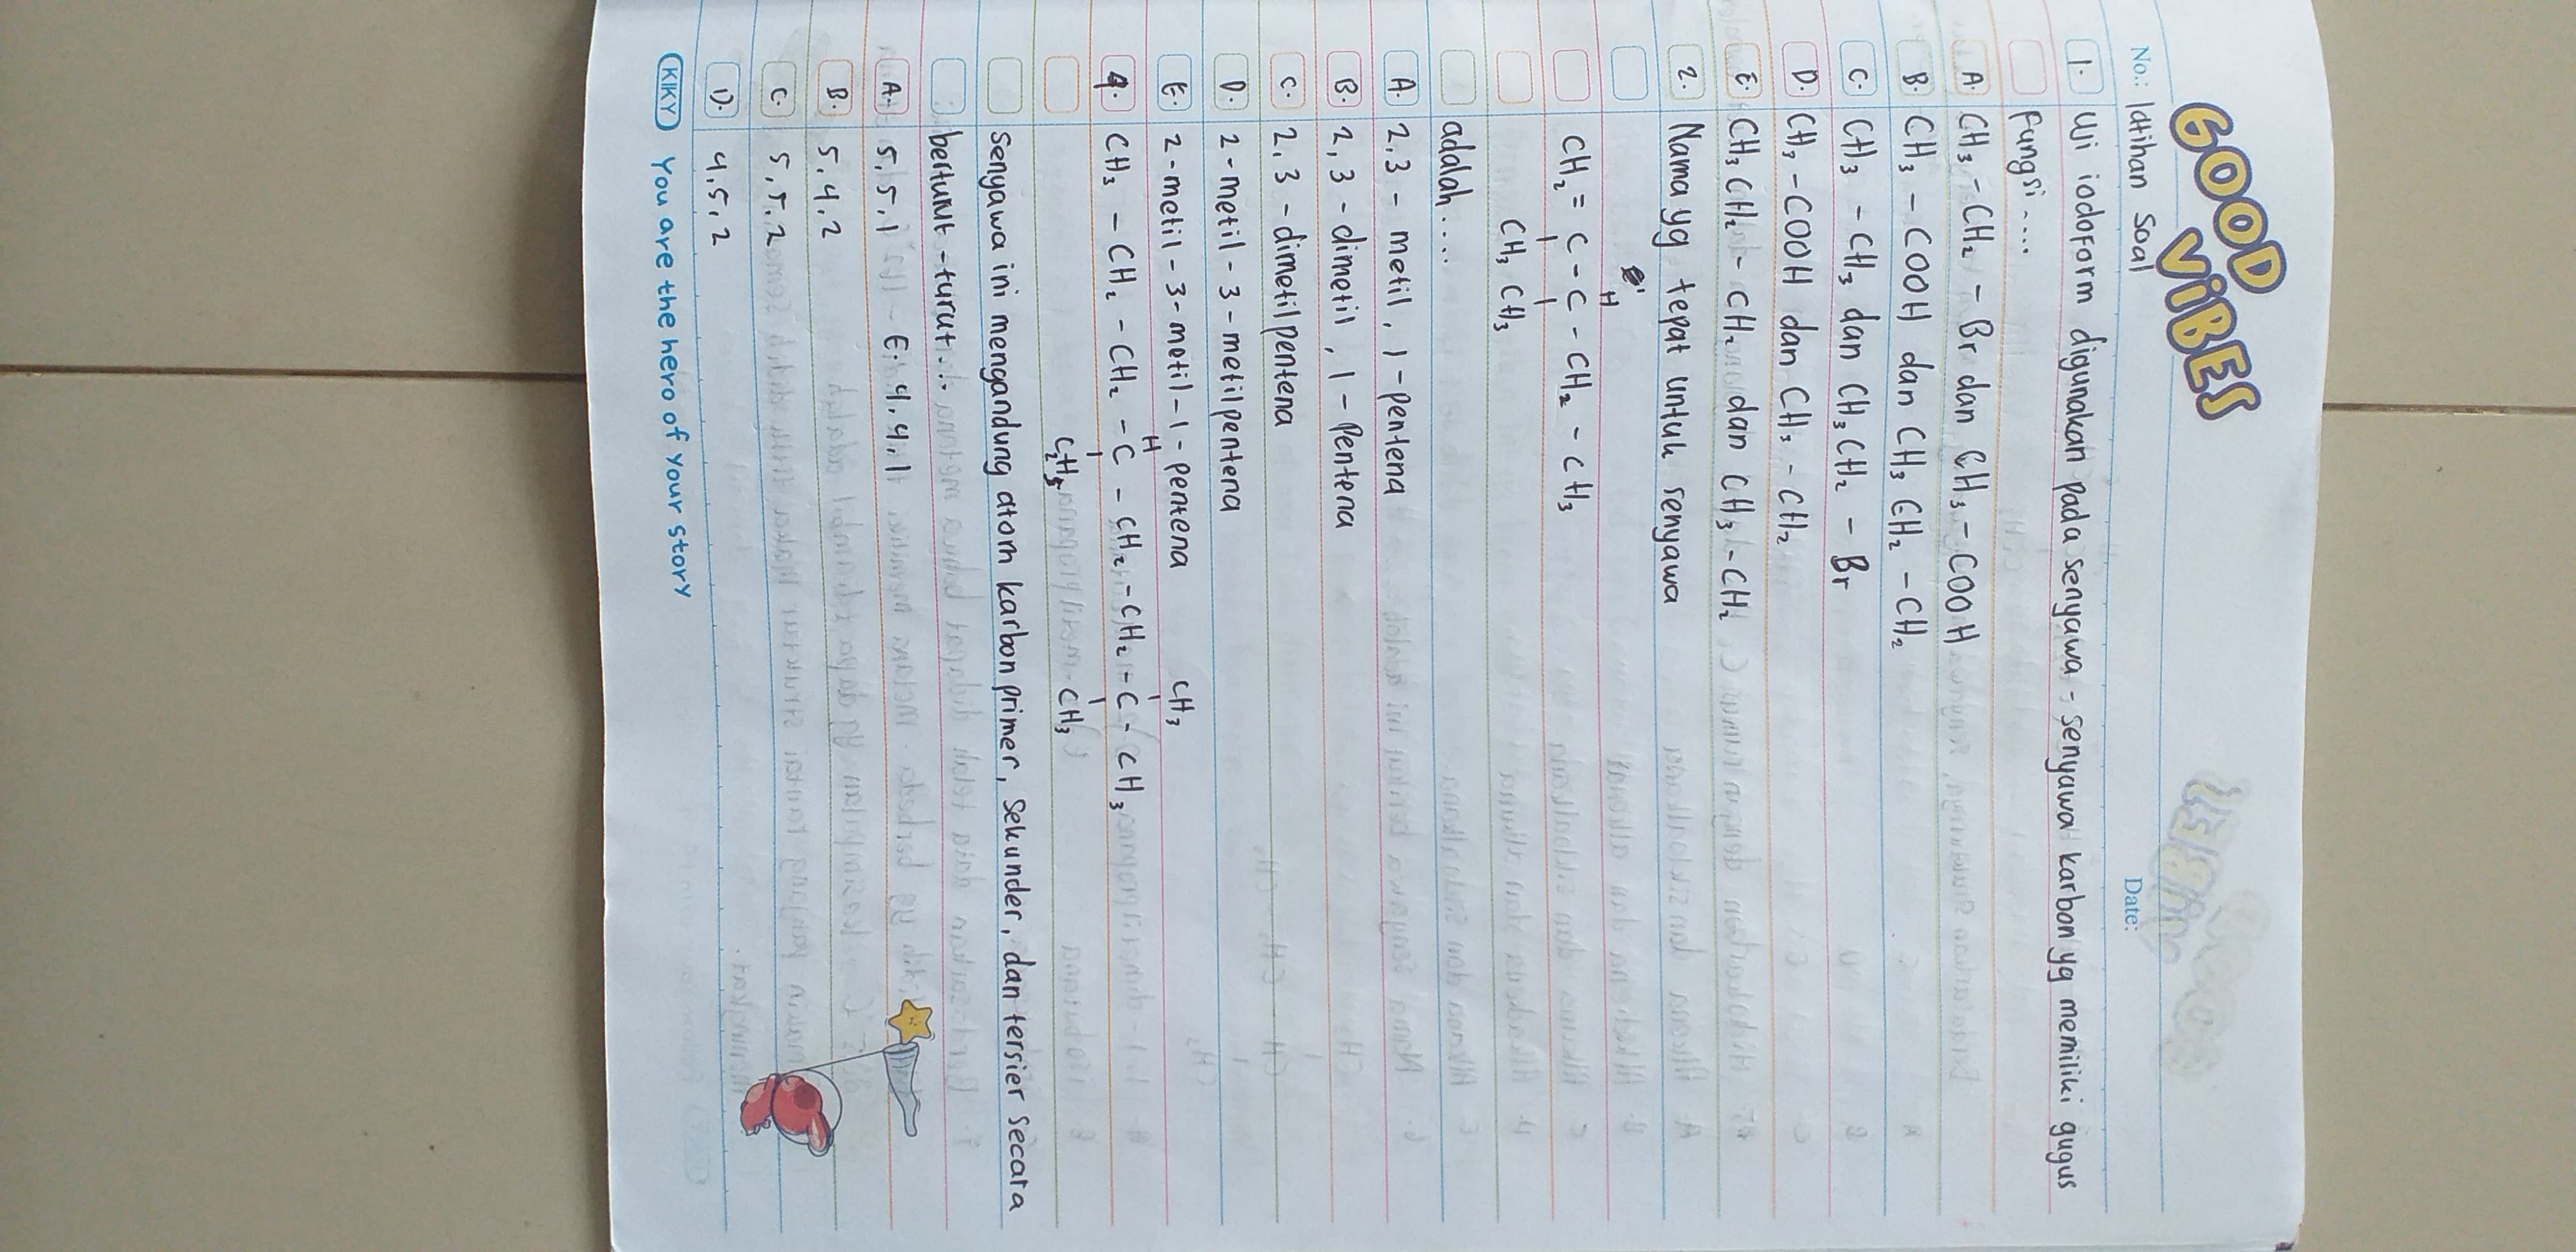 GOOD
ViBES
No.: latihan Soal
Date:
1. Uji iodoform digunakan pada senyawa - senyawa karbon yg memiliki gugus
fungsi ....
A. CH₃ - CH₂ - Br dan CH₃ - COOH
B. CH₃ - COOH dan CH₃ CH₂ - CH₂
C. CH₃ - CH₃ dan CH₃CH₂ - Br
D. CH₃ - COOH dan CH₃ - CH₂
E. CH₃ CH₂ - CH₂ dan CH₃ - CH₂
2. Nama yg tepat untuk senyawa
H
CH₂ = C - C - CH₂ - CH₃
CH₃ CH₃
adalah ....
A. 2,3 - metil, 1 - pentena
B. 2,3 - dimetil, 1 - Pentena
C. 2,3 - dimetil pentena
D. 2 - metil - 3 - metil pentena
E. 2 - metil - 3 - metil - 1 - pentena
H CH₃
4. CH₃ - CH₂ - CH₂ - C - CH₂ - CH₂ - C - CH₃
C₂H₅ CH₃
Senyawa ini mengandung atom karbon primer, sekunder, dan tersier secara
berturut - turut ...
A. 5,5,1 E. 4,4,1
B. 5,4,2
C. 5,5,2
D. 4,5,2
KIKY You are the hero of your story